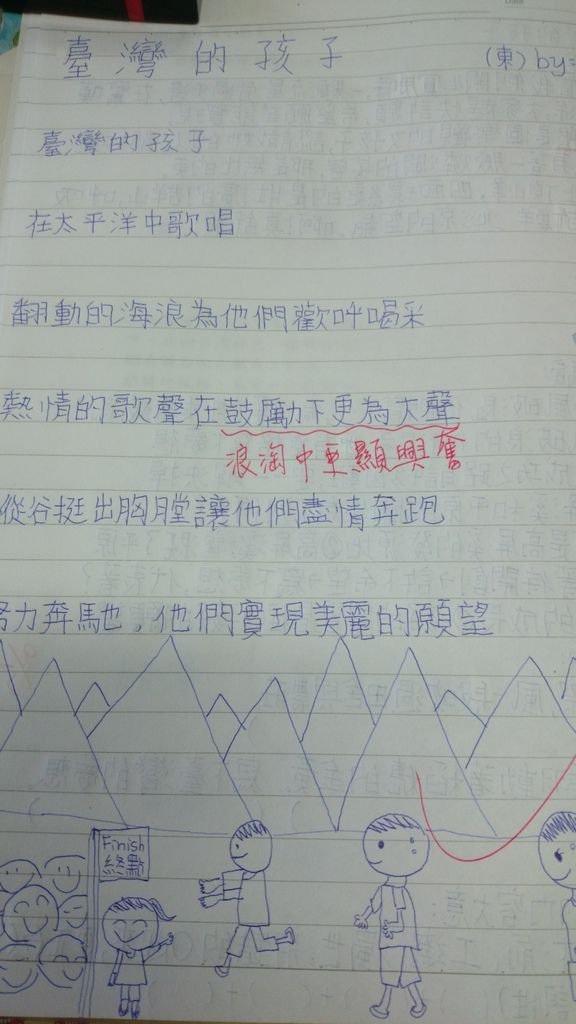 臺灣的孩子
(東) by
臺灣的孩子
在太平洋中歌唱
翻動的海浪為他們歡呼喝采
熱情的歌聲在鼓勵下更為大聲
浪淘中更顯興奮
從谷挺出胸膛讓他們盡情奔跑
努力奔馳,他們實現美麗的願望
Finish
終點